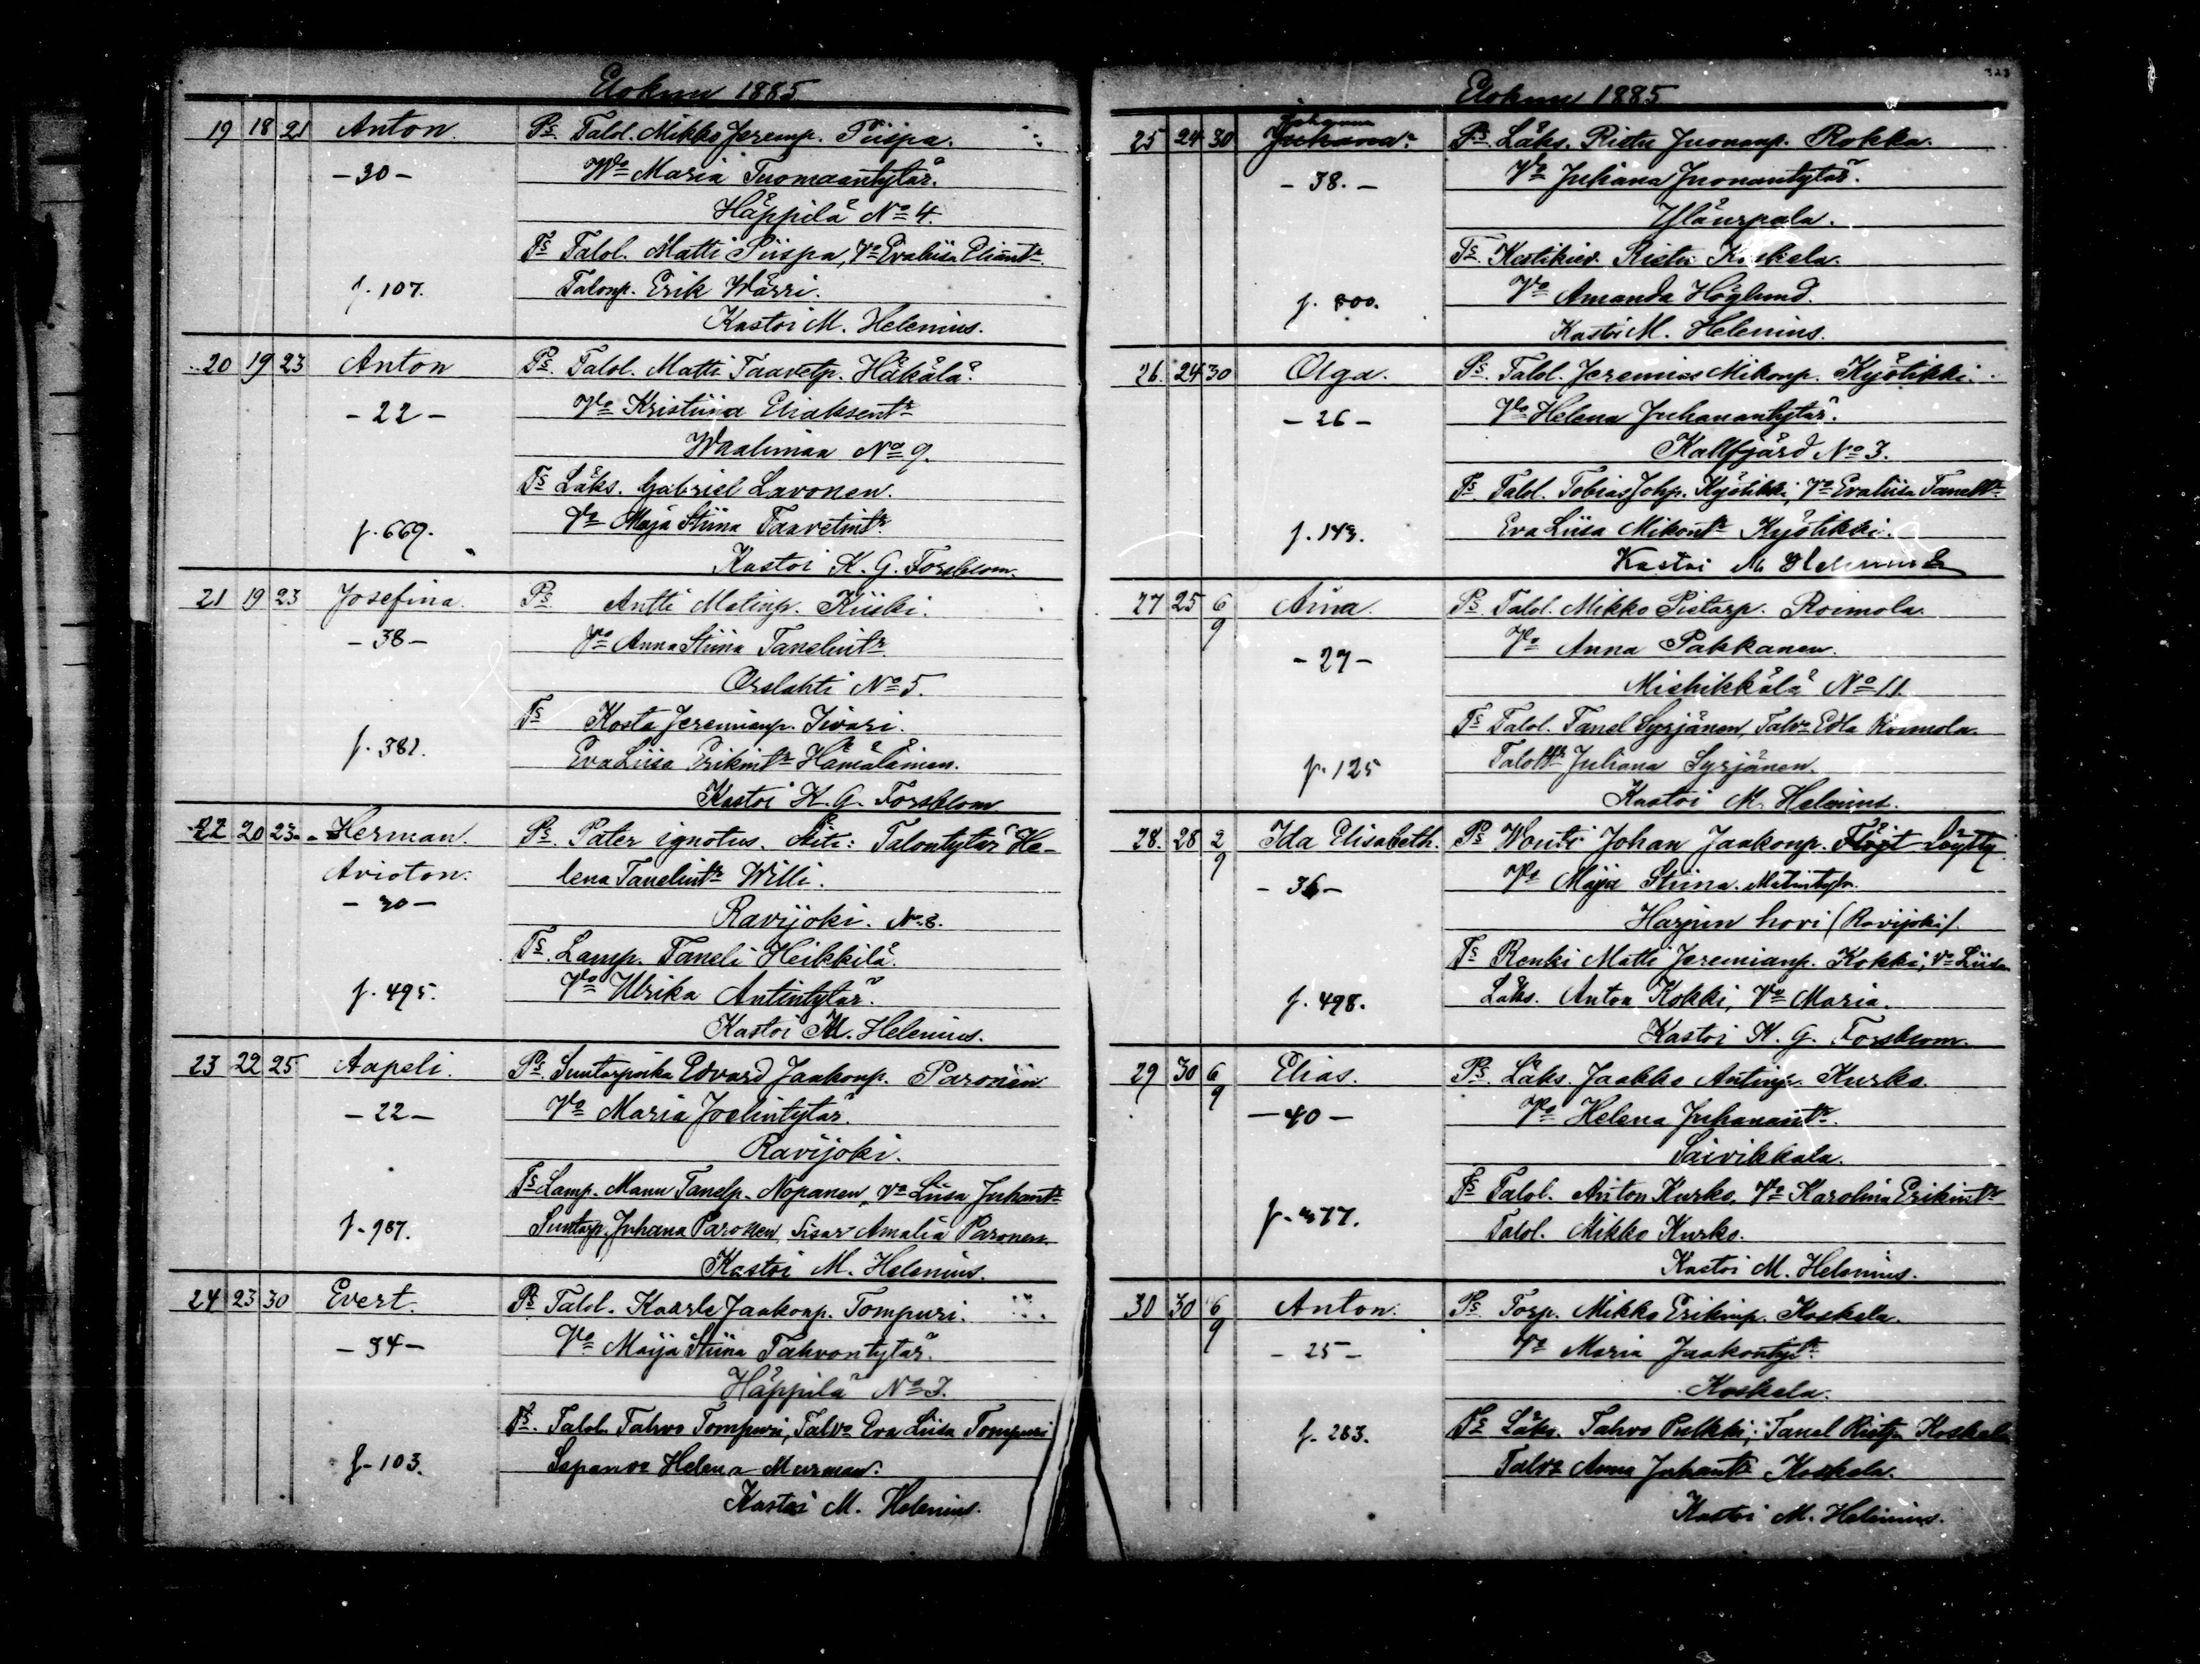 Elokuu 1885
19 18 21 Anton. Ps Talol. Mikko Jeremp. Piispa.
-30- Vo Maria Tuomaantytär.
Häppilä No 4.
Ts Talol. Matti Piispa, Vo Evaliisa Eliaint.
f. 107. Talonp. Erik Wärri.
Kastoi M. Helenius.
20 19 23 Anton Ps Talol. Matti Taavetp. Häkälä.
-22- Vo Kristiina Eliaksent.
Waalimaa No 9.
Ts Läks. Gabriel Lavonen.
f. 669. Vo Maja Stiina Taavetint.
Kastoi K. G. Forsblom.
21 19 23 Josefina. Ps Antti Matinp. Kiiski.
-38- Vo Anna Stiina Tanelint.
Orslahti No 5.
Ts Kosta Jeremianp. Iivari.
f. 381. Eva Liisa Erikint. Hämäläinen.
Kastoi K. G. Forsblom
22 20 23 Herman. Ps. Pater ignotus. Äiti: Talontytär He-
Avioton. lena Tanelint. Willi.
-30- Ravijoki. No 8.
Ts. Lamp. Taneli Heikkilä.
f. 495. Vo Ulrika Antintytär.
Kastoi M. Helenius.
23 22 25 Aapeli. Ps. Suutarpoika Edvard Jaakonp. Paronen
-22- Vo Maria Joelintytär.
Ravijoki.
Ts Lamp. Manu Tanelp. Nopanen, Vo Liisa Juhant.
f. 987. Suutarp. Juhana Paronen, Sisar Amalia Paronen.
Kastoi M. Helenius.
24 23 30 Evert. Ps Talol. Kaarle Jaakonp. Tompuri.
-34- Vo Maija Stiina Tahvontytär.
Häppilä No 3.
Ts. Talol. Tahvo Tompuri, Talvo Eva Liisa Tompuri
f. 103. Sepänvo Helena Murman.
Kastoi M. Helenius.
Elokuu 1885
Johanna
25 24 30 Juhana. Ps Läks. Rietu Juonanp. Rokka.
-38.- Vo Juliana Juonantytär.
Yläurpala.
Ts. Kestikiev. Rietu Koskela.
f. 800. Vo Amanda Höglund.
Kastoi M. Helenius.
26. 24 30 Olga. Ps. Talol. Jeremias Mikonp. Kyöstikki.
-26- Vo Helena Juhanantytär.
Kallfjärd No 3.
Ts. Talol. Tobias Johp. Kyöstikki, Vo Evaliisa Tanelt.
f. 143. Eva Liisa Mikont. Kyöstikki.
Kastoi M Helenius
27 25 6/9 Aina. Ps. Talol. Mikko Pietarp. Roimola.
-27- Vo Anna Pakkanen.
Miehikkälä No 11
Ts Talol. Tanel Syrjänen, Talvo Edla Roimola.
f. 125 Talottr Juliana Syrjänen.
Kastoi M. Helenius.
28. 28 2/9 Ida Elisabeth. Ps Wouti Johan Jaakonp. Flöjt Löytty.
-36- Vo Maja Stiina Matintytr.
Harjun hovi (Ravijoki).
Ts Renki Matti Jeremianp. Kokki, Vo Liisa
f. 498. Läks. Anton Kokki, Vo Maria.
Kastoi K. G. Forsblom.
29 30 6/9 Elias. Ps. Läks. Jaakko Antinp. Kurko.
-40- Vo Helena Juhanant.
Saivikkala.
Ts Talol. Anton Kurko, Vo Karolina Erikint.
f. 377. Talol. Mikko Kurko.
Kastoi M. Helenius.
30 30 6/9 Anton. Ps. Torp. Mikko Erikinp. Koskela.
-25- Vo Maria Jaakontyt.
Koskela.
Ts Läks. Tahvo Pulkki, Tanel Rietp. Koskela
f. 263. Talvo Anna Juhant. Koskela.
Kastoi M. Helenius.